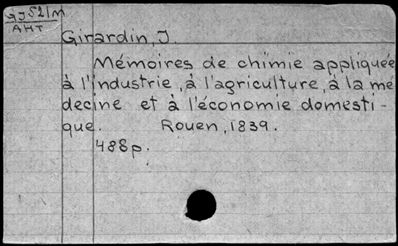 GJ521M
AHT
Girardin, J.
Mémoires de chimie appliquée
à l'industrie, à l'agriculture, à la mé
decine et à l'économie domesti-
que. Rouen, 1839.
488p.